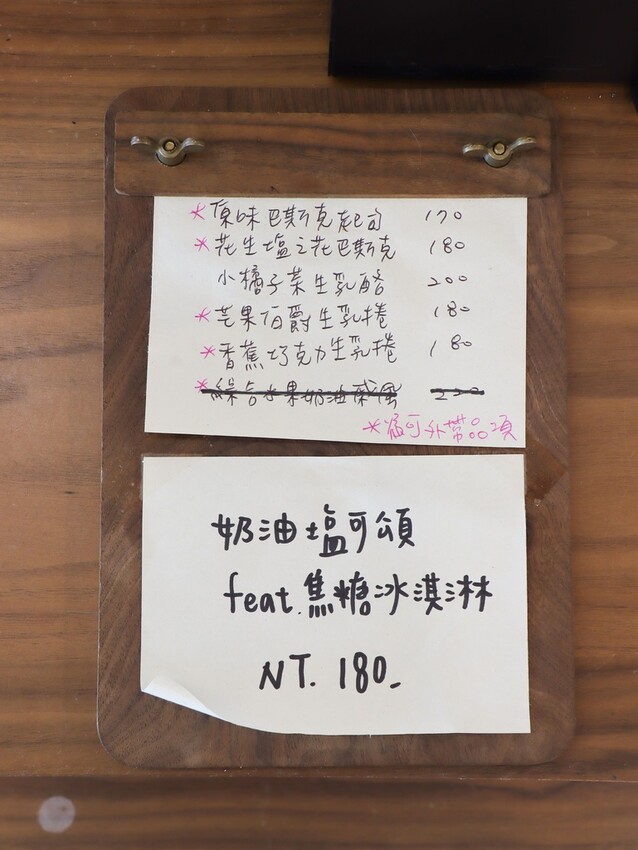 *原味巴斯克起司 170
*花生塩之花巴斯克 180
小橘子菓生乳酪 200
*芒果伯爵生乳捲 180
*香蕉巧克力生乳捲 180
*綜合水果奶油戚風 220
*為可外帶品項
奶油塩可頌
feat.焦糖冰淇淋
NT. 180_